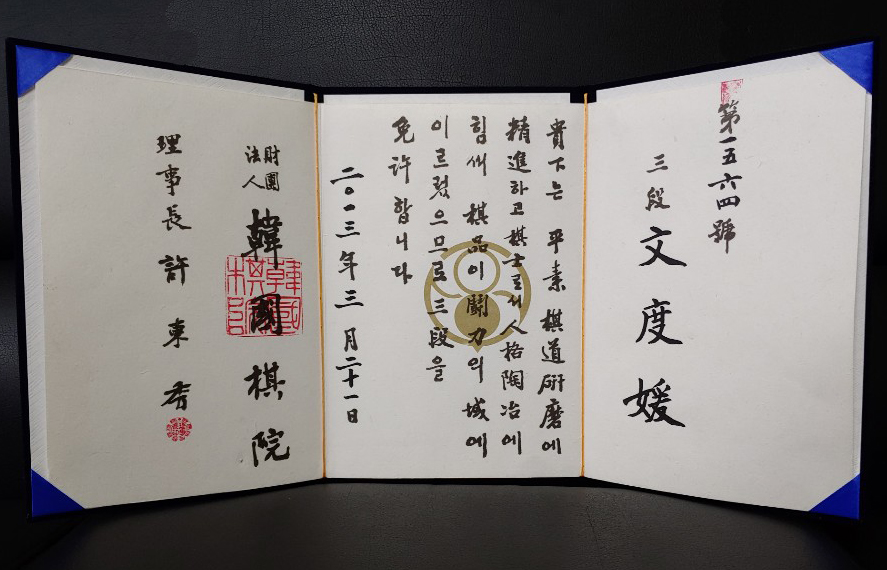 第一五六四號
三段 文度媛
貴下는 平素 棋道硏磨에
精進하고 棋士로서 人格陶冶에
힘써 棋品이 鬪力의 域에
이르렀으므로 三段을
免許합니다
二〇一三年 三月 二十一日
財團
法人 韓國棋院
理事長 許東秀